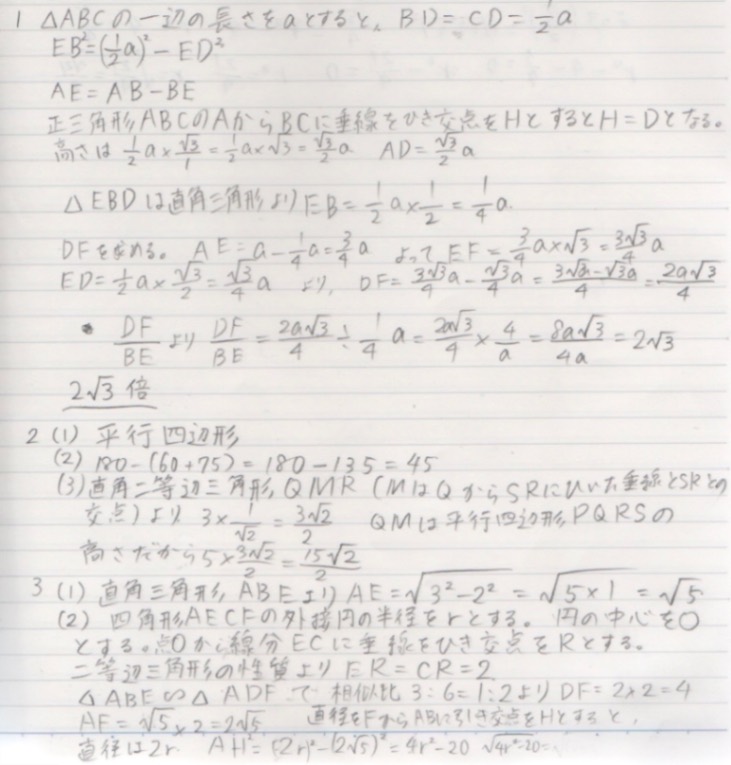 1 △ABCの一辺の長さをaとすると、BD=CD=1/2a
EB²=(1/2a)²-ED²
AE=AB-BE
正三角形ABCのAからBCに垂線をひき交点をHとするとH=Dとなる。
高さは 1/2a×√3/1=1/2a×√3=√3/2a AD=√3/2a
△EBDは直角三角形よりEB=1/2a×1/2=1/4a
DFを求める。AE=a-1/4a=3/4a よってEF=3/4a×√3=3√3/4a
ED=1/2a×√3/2=√3/4a より、DF=3√3/4a-√3/4a=3√3a-√3a/4=2a√3/4
• DF/BEより DF/BE=2a√3/4÷1/4a=2a√3/4×4/a=8a√3/4a=2√3
2√3倍
2 (1) 平行四辺形
(2) 180-(60+75)=180-135=45
(3)直角二等辺三角形QMR (MはQからSRにひいた垂線とSRとの
交点)より 3×1/√2=3√2/2 QMは平行四辺形PQRSの
高さだから5×3√2/2=15√2/2
3 (1) 直角三角形ABEよりAE=√3²-2²=√5×1=√5
(2) 四角形AECFの外接円の半径をrとする。円の中心をO
とする。点Oから線分ECに垂線をひき交点をRとする。
二等辺三角形の性質よりER=CR=2
△ABE∽△ADFで 相似比3:6=1:2よりDF=2×2=4
AF=√5×2=2√5 直径をFからABに引き交点をHとすると、
直径は2r AH²=(2r)²-(2√5)²=4r²-20 √4r²-20=